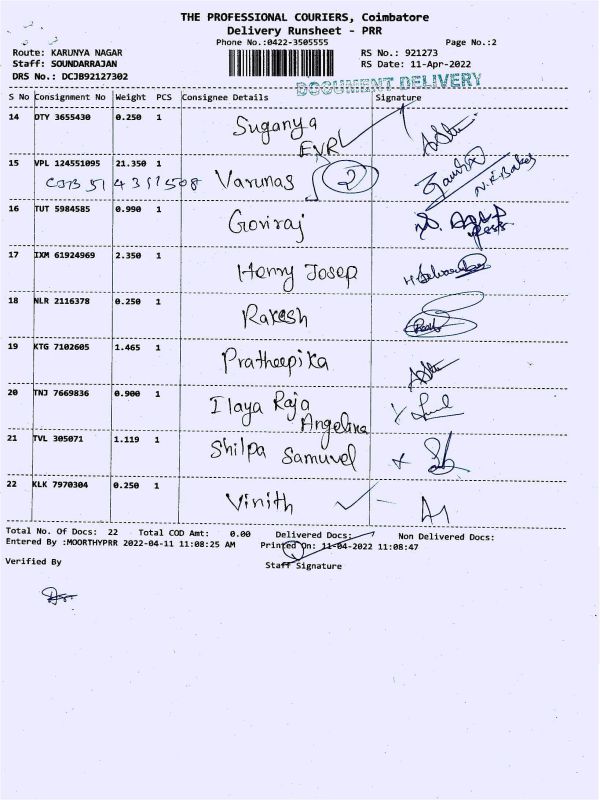 THE PROFESSIONAL COURIERS, Coimbatore
Delivery Runsheet - PRR
Phone No.:0422-3505555 Page No.:2
Route: KARUNYA NAGAR RS No.: 921273
Staff: SOUNDARRAJAN RS Date: 11-Apr-2022
DRS No.: DCJB92127302
DOCUMENT DELIVERY
S No Consignment No Weight PCS Consignee Details Signature
14 DTY 3655430 0.250 1 Suganya
EVR
15 VPL 124551095 21.350 1 Varunas 2
16 TUT 5984585 0.990 1 Goviraj
17 IXM 61924969 2.350 1 Henry Josep
18 NLR 2116378 0.250 1 Rakesh
19 KTG 7102605 1.465 1 Pratheepika
20 TNJ 7669836 0.900 1 Ilaya Raja
Angelina
21 TVL 305071 1.119 1 Shilpa Samuvel
22 KLK 7970304 0.250 1 Vinith
Total No. Of Docs: 22 Total COD Amt: 0.00 Delivered Docs: Non Delivered Docs:
Entered By :MOORTHYPRR 2022-04-11 11:08:25 AM Printed On: 11-04-2022 11:08:47
Verified By Staff Signature